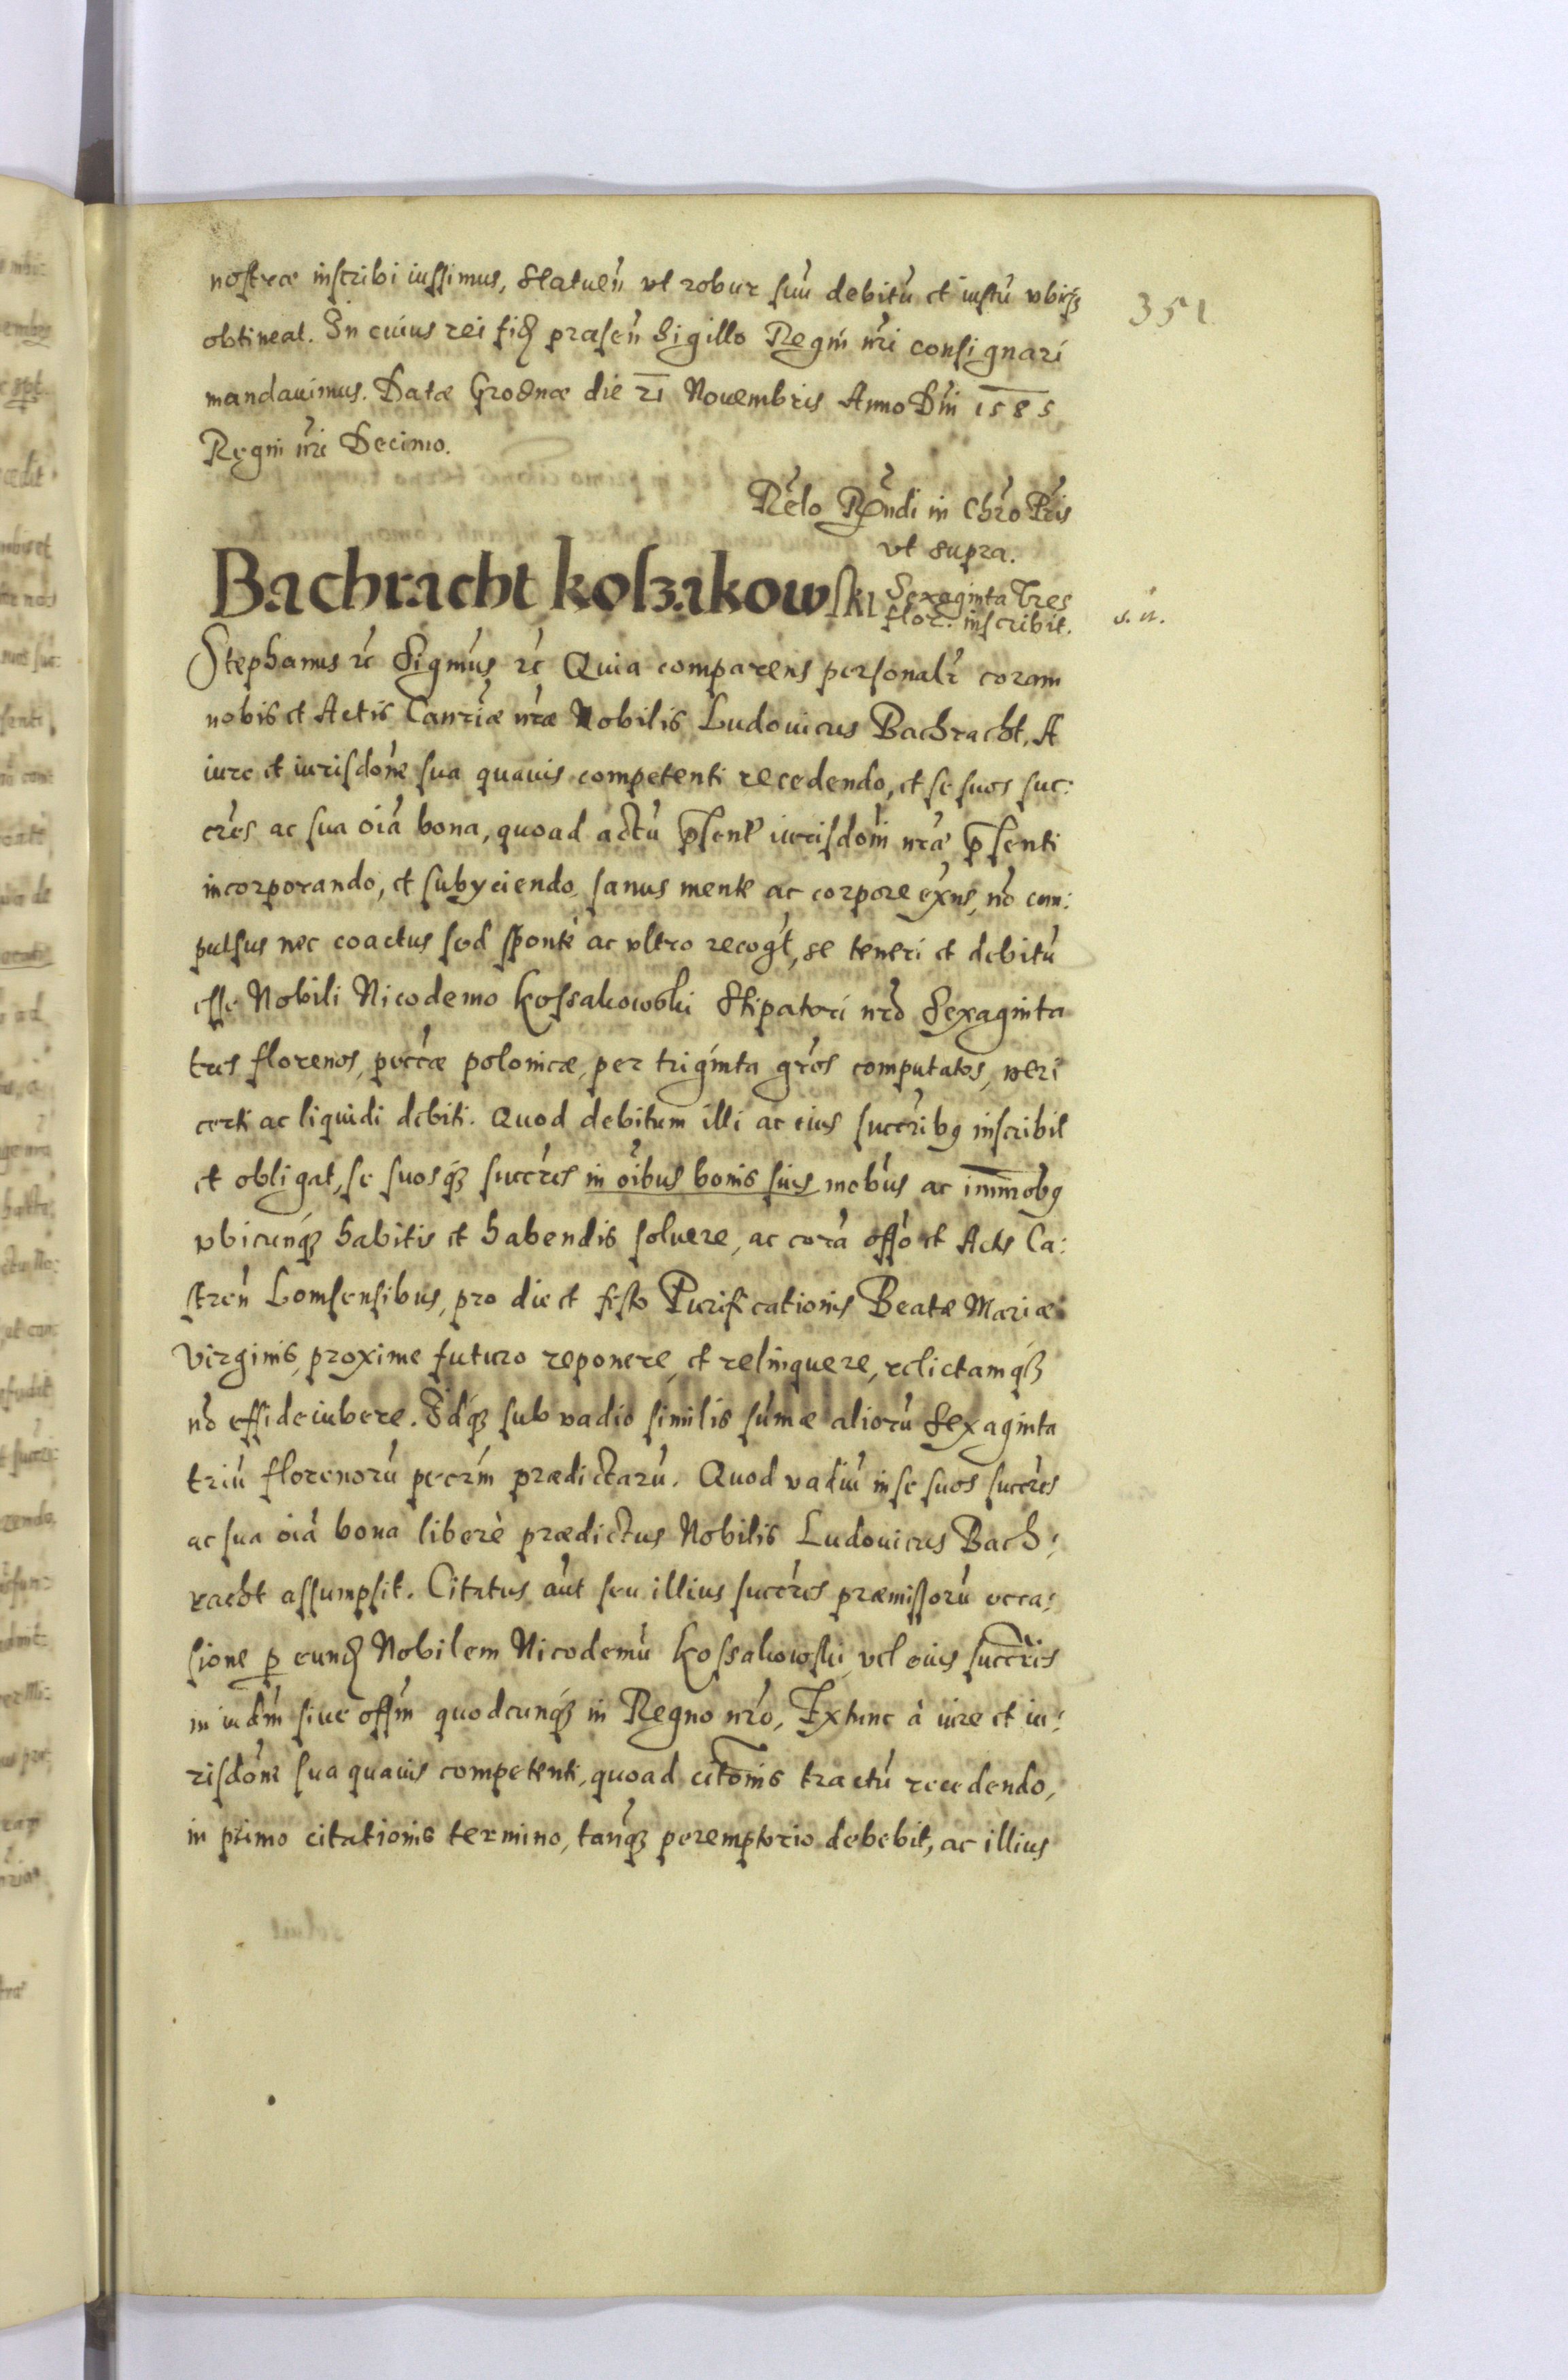 nostræ inscribi iussimus, Statueñ vt robur suũ debitũ et iustũ vbiq3
obtineat. In cuius rei fid præsen Sigillo Regni nri consignari
mandauimus. Datæ Grodnæ die 21 Nouembris Anno Dni 1585
Regni nri Decimo.
351
Relo Rndi in Chro Pris
vt supra.
Bachracht koszakowski Sexaginta Tres
flor: inscribit.
Stephanus rc Sigmus rc Quia comparens personalr coram
nobis et Actis Canriæ nræ Nobilis Ludouicus Bachracht, A
iure et iurisdone sua quauis competenti recedendo, et se suos suc:
cres ac sua oia bona, quoad actũ psentẽ iurisdoni nræ psenti
incorporando, et subyciendo, sanus mente ac corpore exns, nõ com:
pulsus nec coactus sed sponte ac vltro recogt, se teneri et debitũ
esse Nobili Nicodemo Kossakowski Stipatori nro Sexaginta
tres florenos, peccæ polonicæ, per triginta gros computatos, veri
certi ac liquidi debiti. Quod debitum illi ac eius succribg inscribit
et obligat, se suosq3 succres in oibus bonis suis mobus ac immobg
vbicunq3 habitis et habendis soluere, ac corã offo et Actis Ca:
streñ Lomsensibus, pro die et festo Purificationis Beatæ Mariæ
Virginis, proxime futuro reponere, et relinquere, relictamq3
nõ effideiubere. Idq3 sub vadio similis sumæ aliorũ Sexaginta
triũ florenorũ pecrm prædictarũ. Quod vadiũ in se suos succres
ac sua oia bona liberè prædictus Nobilis Ludouicus Bach:
racht assumpsit. Citatus aut seu illius succres præmissorũ occa:
sione p eund Nobilem Nicodemũ Kossakowski, vel eius succres
in iudm siue offm quodcunq3 in Regno nro, Extunc à iure et iu:
risdone sua quauis competenti, quoad citonis tractũ recedendo,
in primo citationis termino, tanq3 peremptorio debebit, ac illius